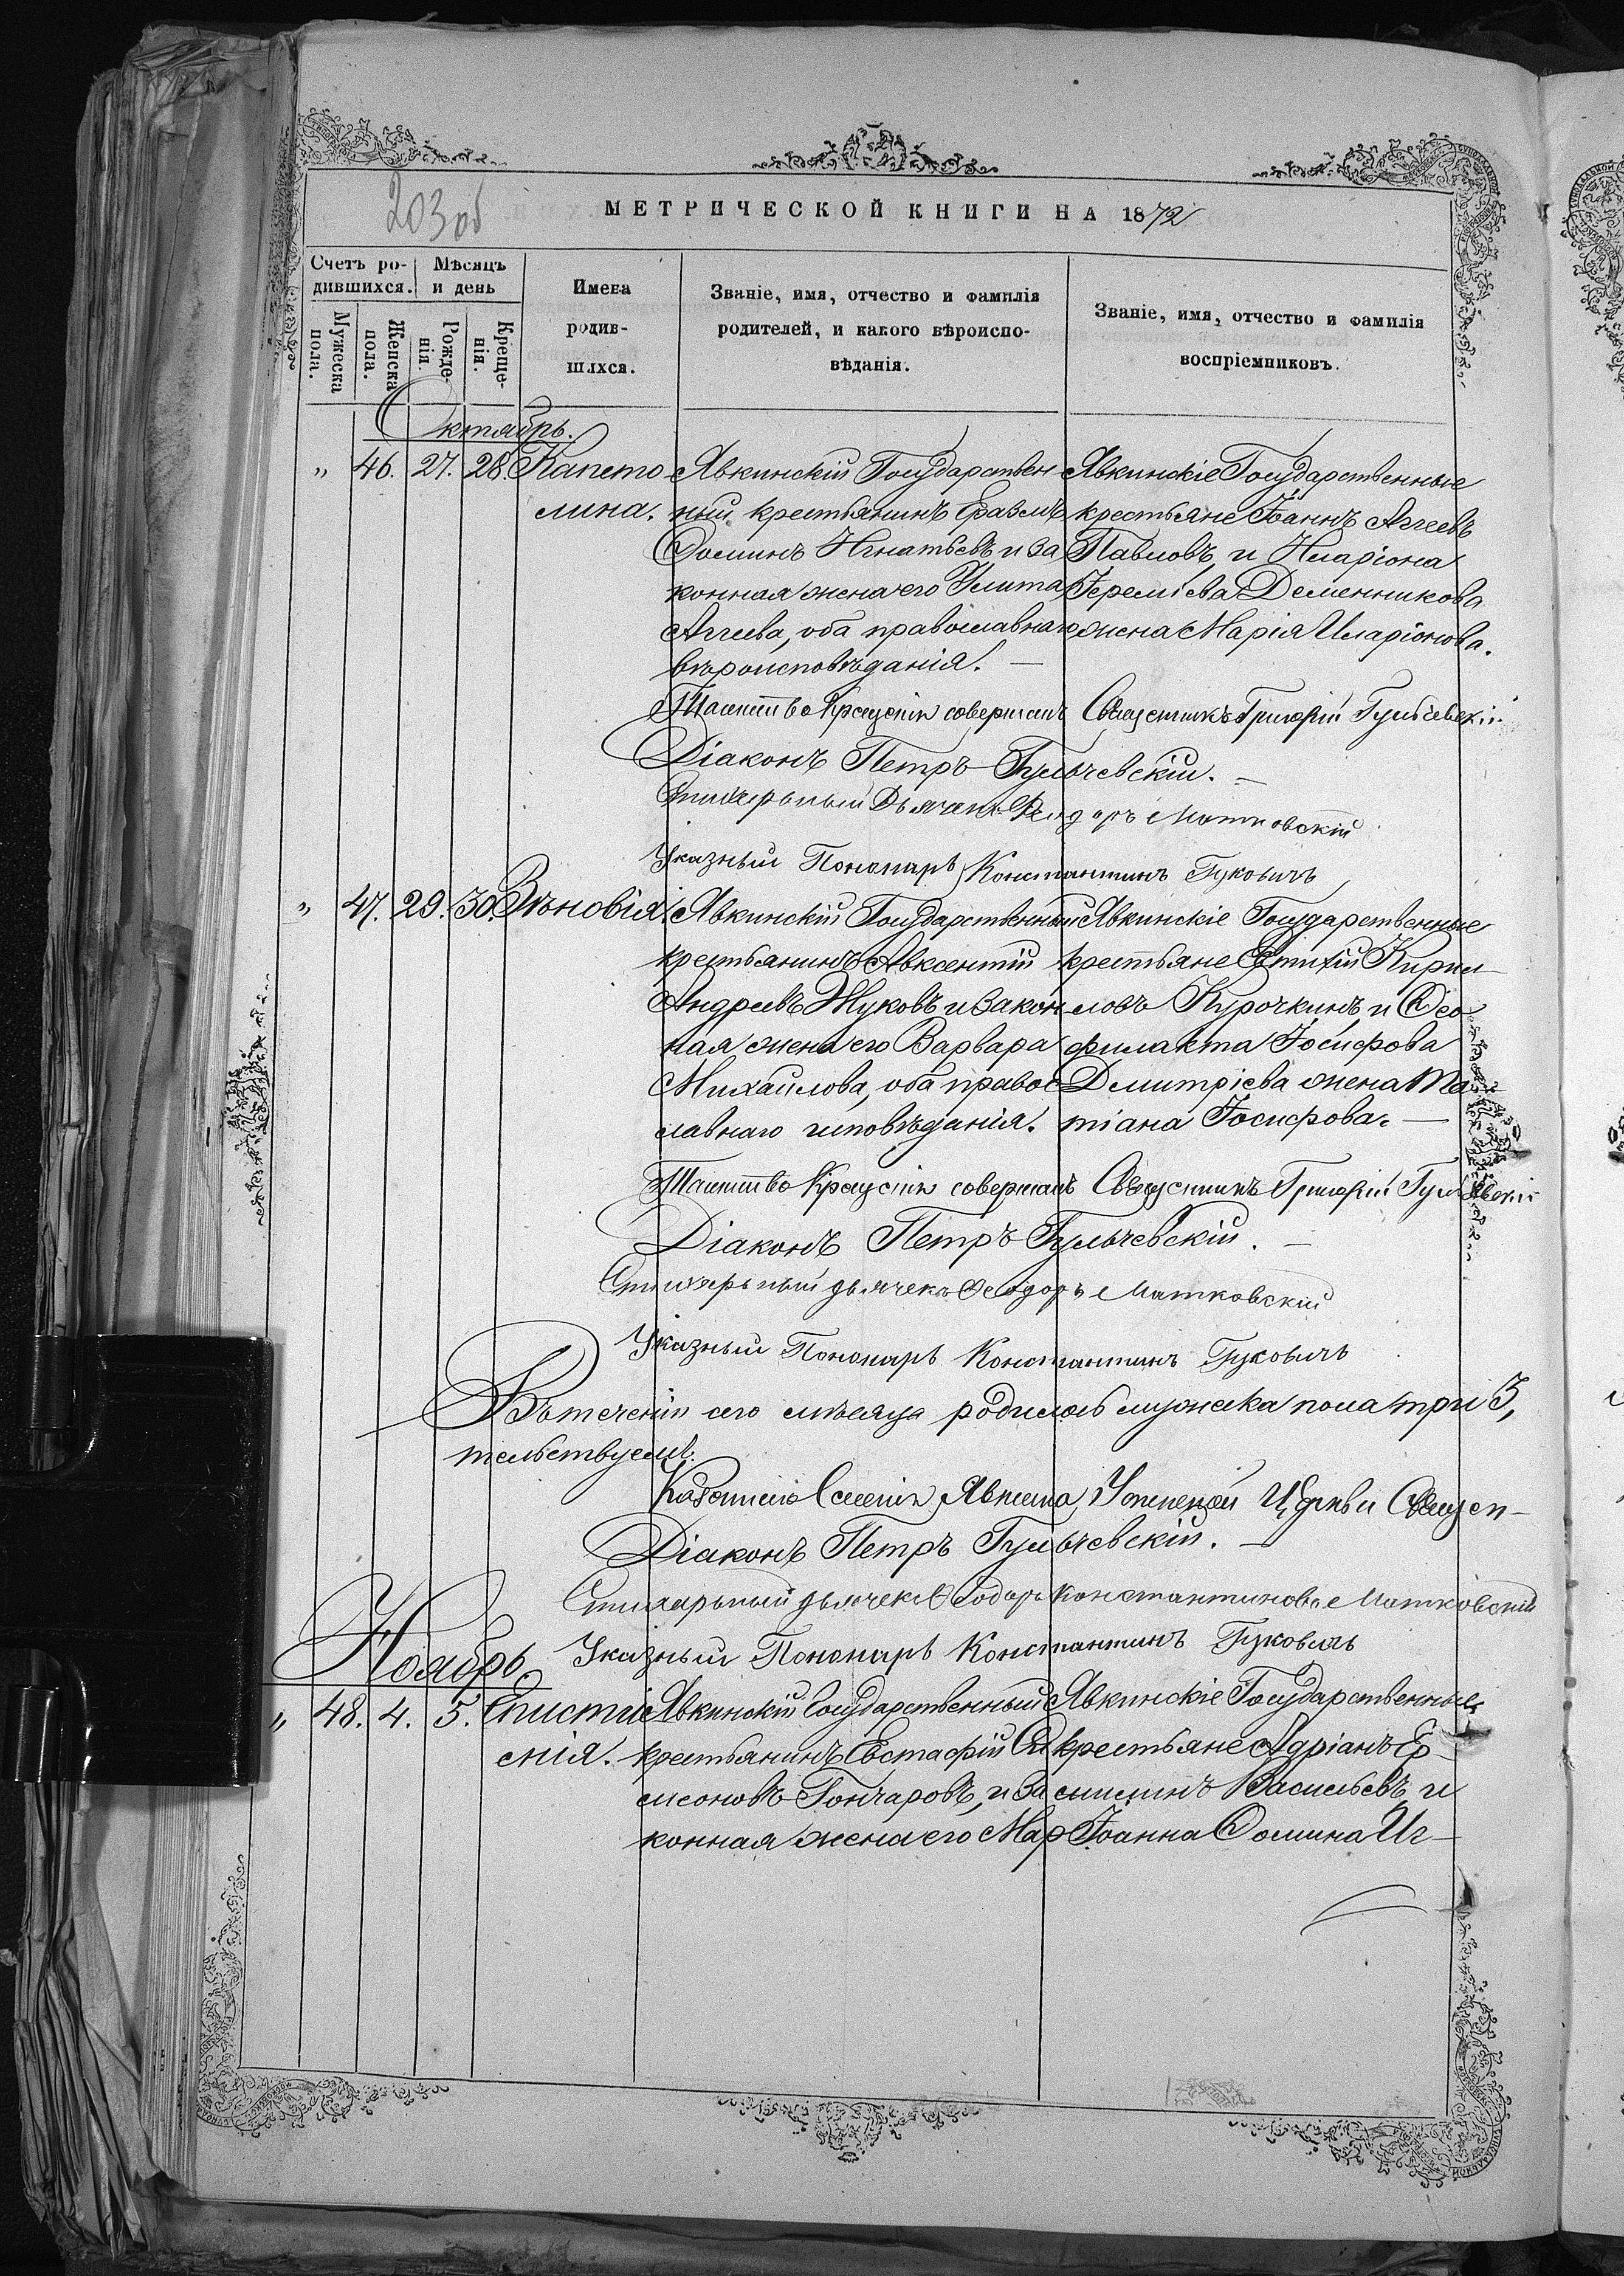 203 об
МЕТРИЧЕСКОЙ КНИГИ НА 1872
Счетъ родившихся.
Мѣсяцъ и день
Мужеска пола.
Женска пола.
Рожденія.
Крещенія.
Имена родившихся.
Званіе, имя, отчество и фамилія родителей, и какого вѣроисповѣданія.
Званіе, имя, отчество и фамилія воспріемниковъ.
Октябрь.
„ 46. 27. 28. Капето-
лина.
Явкинскій Государствен
ный крестьянинъ Еразмъ
Ѳоминъ Игнатьевъ и за
конная жена его Улита
Аггеева, оба православнаго
вѣроисповѣданія. —
Явкинскіе Государственные
крестьяне Іоаннъ Аггеевъ
Павловъ, и Иларіона
Іереміева Деменникова
жена Марія Иларіонова.
Таинство Крещенія совершалъ Священникъ Григорій Гульчевскій
Діаконъ Петръ Гульчевскій. —
Стихарный Дьячекъ Феодоръ Матковскій
Указный Пономарь Константинъ Гуковичъ
„ 47. 29. 30. Зѣновія.
Явкинскій Государственный
крестьянинъ Авксентій
Андреевъ Жуковъ и закон
ная жена его Варвара
Михайлова, оба правос
лавнаго исповѣданія.
Явкинскіе Государственные
крестьяне Евтихій Кирил-
ловъ Курочкинъ, и Ѳео-
филакта Іосифова
Димитріева жена Та-
тіана Іосифова. —
Таинство Крещенія совершалъ Священникъ Григорій Гульчевскій
Діаконъ Петръ Гульчевскій. —
Стихарный дьячекъ Ѳеодоръ Матковскій
Указный Пономарь Константинъ Гуковичъ
Въ теченіи сего мѣсяца родилось мужеска пола три 3,
тельствуемъ.
Явкина Успенской Церкви Священ-
Діаконъ Петръ Гульчевскій. —
Стихарный дьячекъ Ѳеодоръ Константиновъ Матковскій
Указный Пономарь Константинъ Гуковичъ
Ноябрь
„ 48. 4. 5. Епистим
снія.
Явкинскій Государственный
крестьянинъ Евстафій Си
меоновъ Гончаровъ, и за
конная жена его Мар
Явкинскіе Государственные
крестьяне Адріанъ Ер-
Васильевъ, и
Іоанна Ѳомина Иг-